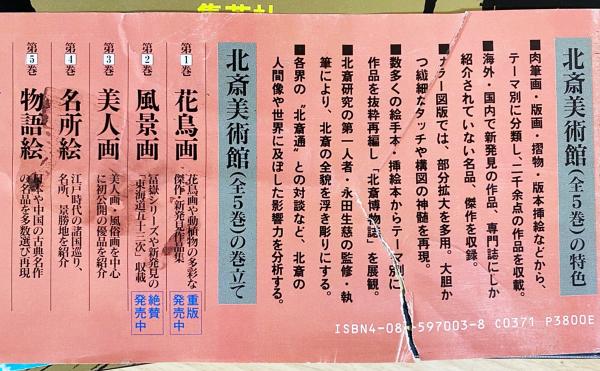 集英社
北斎美術館(全5巻)の特色
■肉筆画・版画・摺物・版本挿絵などから、
テーマ別に分類し、二千余点の作品を収載。
■海外・国内で新発見の作品、専門誌にしか
紹介されていない名品、傑作を収録。
■カラー図版では、部分拡大を多用。大胆か
つ繊細なタッチや構図の神髄を再現。
■数多くの絵手本・挿絵本からテーマ別に
作品を抜粋再編し「北斎博物誌」を展観。
■北斎研究の第一人者・永田生慈の監修・執
筆により、北斎の全貌を浮き彫りにする。
■各界の〝北斎通〟との対談など、北斎の
人間像や世界に及ぼした影響力を分析する。
北斎美術館(全5巻)の巻立て
第1巻 花鳥画 花鳥画や動植物の多彩な
傑作・新発見作品集
重版
発売中
第2巻 風景画 冨嶽シリーズや新発見の
「東海道五十三次」収載
絶賛
発売中
第3巻 美人画 美人画・風俗画を中心
に初公開の優品を紹介
第4巻 名所絵 江戸時代の諸国巡り、
名所、景勝地を紹介
第5巻 物語絵 日本や中国の古典名作
の名品を多数選び再現
ISBN4-08-597003-8 C0371 P3800E